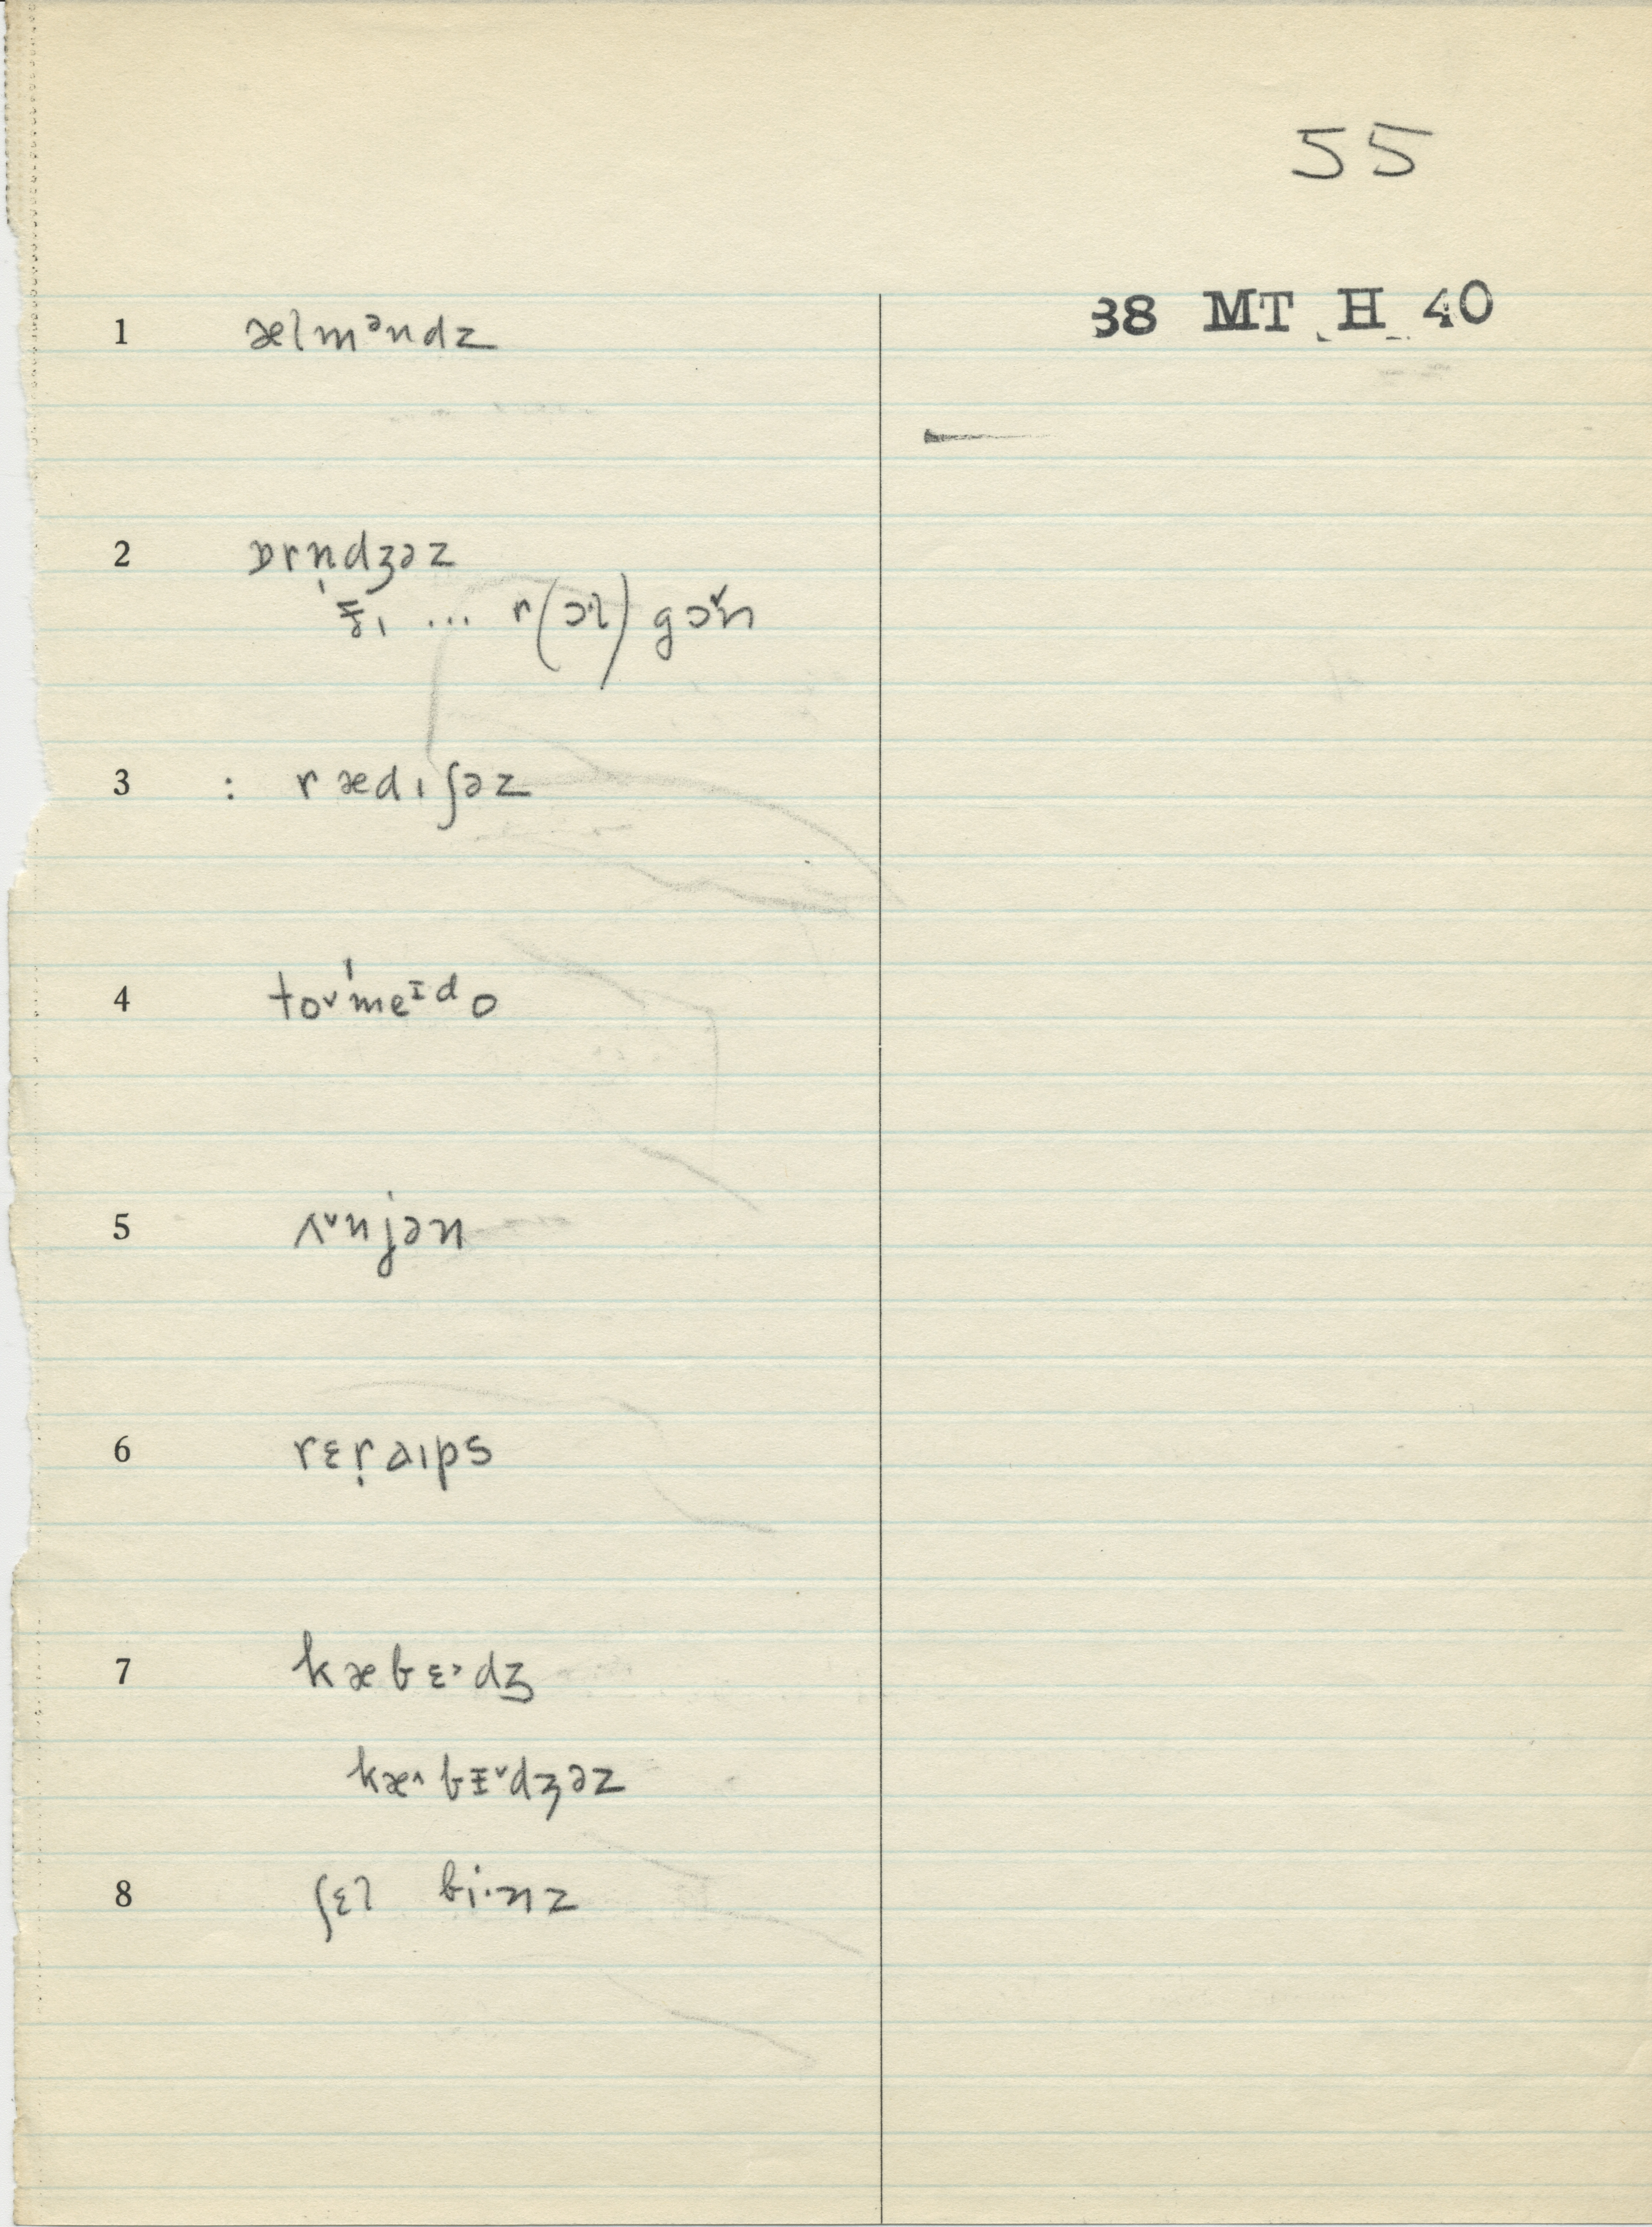 55
38 MT H 40
1 ælmᵊndz
2 ɒrn̩dʒəz
ɪ̵ ... r(ɔl) gɔ˅n
3 : rædɪʃəz
4 to˅ˈmeᶦdo
5 ʌ˅njən
6 rɛr̩aɪps
7 kæbɛ˃dʒ
kæ˄bɪ̵˅dʒəz
8 ʃɛl bi·nz